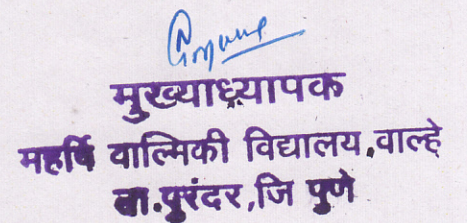 मुख्याध्यापक
महर्षि वाल्मिकी विद्यालय,वाल्हे
ता.पुरंदर,जि पुणे